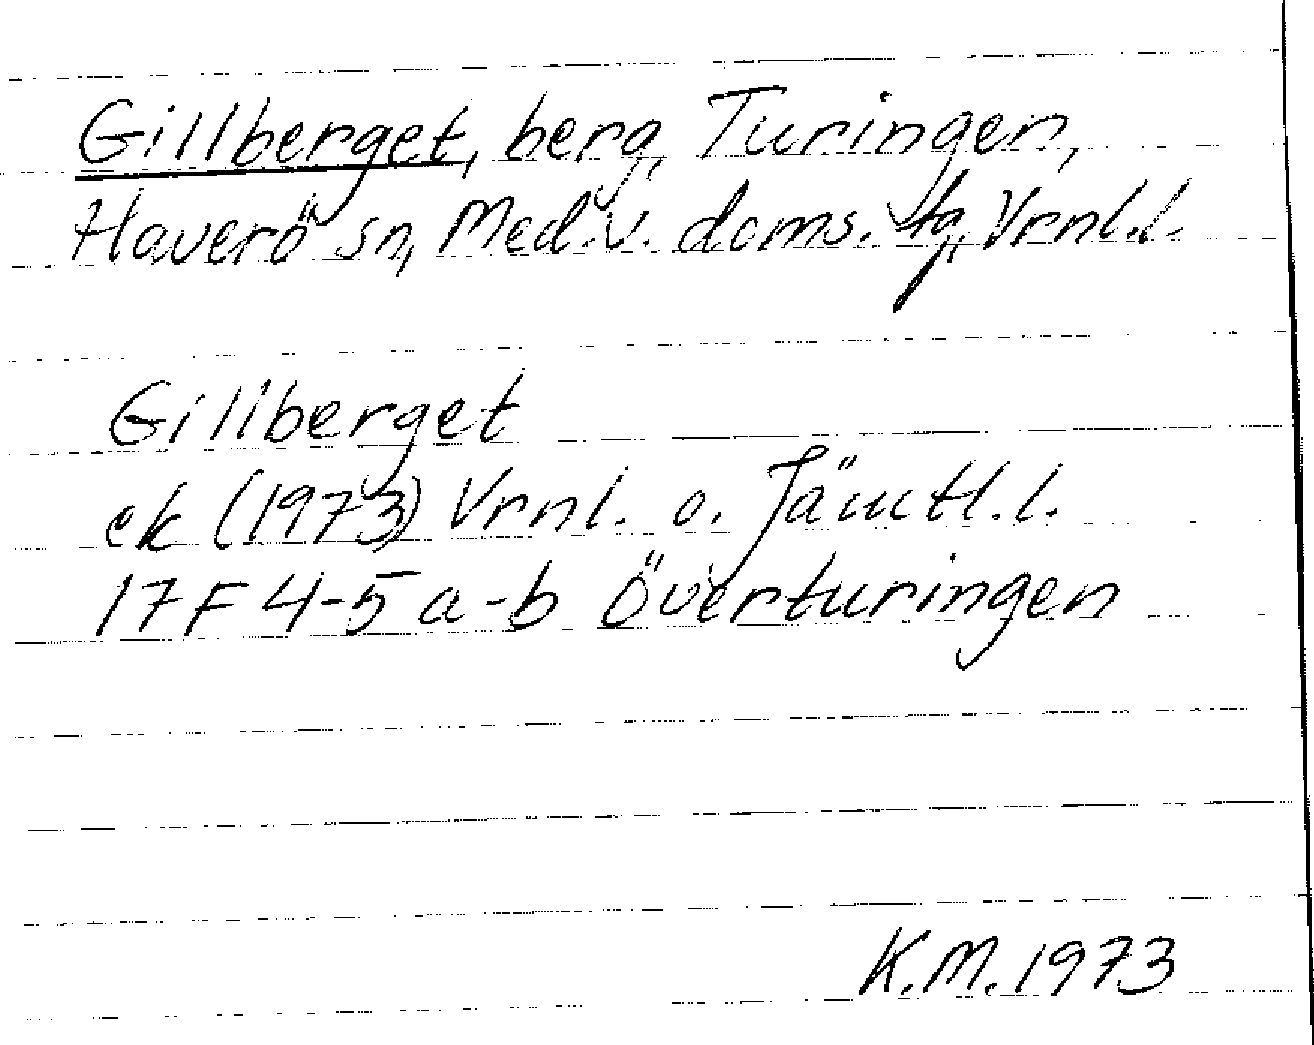 Gillberget, berg, Turingen,
Haverö sn, Med. v. doms. tg, Vrnl. l.
Gillberget
ek (1973) Vrnl. o. Jämtl. l.
17F 4-5 a-b Överturingen
K.M. 1973